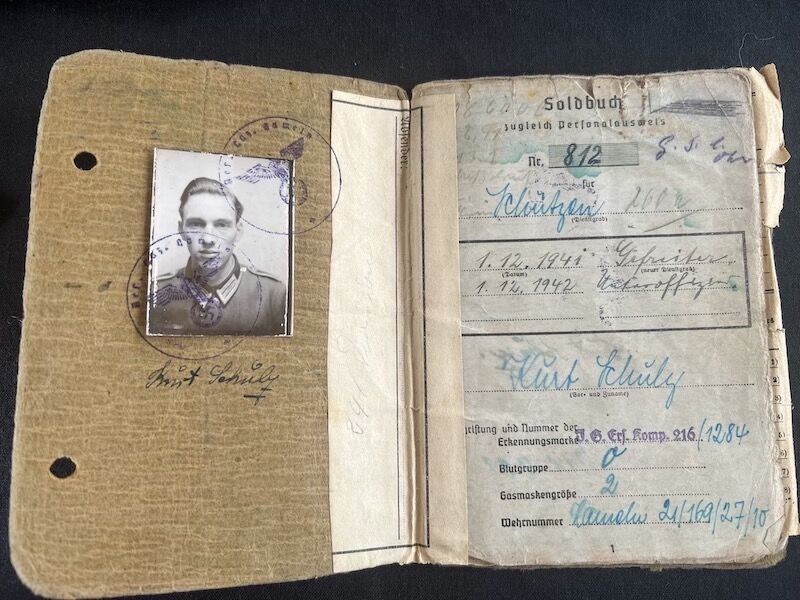 Kurt Schulz
Absender:
Soldbuch
zugleich Personalausweis
Nr. 812
für
Schützen
(Dienstgrad)
1.12.1941 Gefreiter
(Datum) (neuer Dienstgrad)
1.12.1942 Unteroffizier
Kurt Schulz
(Vor- und Zuname)
und Nummer der
Erkennungsmarke J. G. Ers. Komp. 216/1284
Blutgruppe O
Gasmaskengröße 2
Wehrnummer Hameln 21/169/27/10
1